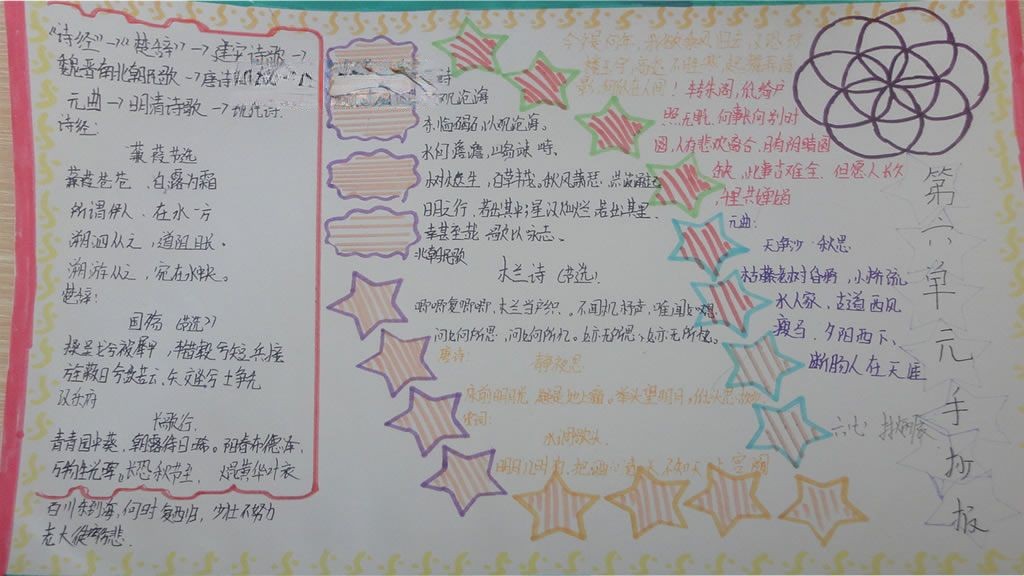 “诗经”→“楚辞”→建安诗歌→
魏晋南北朝民歌→唐诗
元曲→明清诗歌→现代诗.
诗经:
蒹葭 节选
蒹葭苍苍 白露为霜
所谓伊人、在水一方
溯洄从之,道阻且长、
溯游从之,宛在水中央。
楚辞:
国殇(节选)
操吴戈兮被犀甲,车错毂兮短兵接
旌蔽日兮敌若云、矢交坠兮士争先
汉乐府
长歌行
青青园中葵,朝露待日晞。阳春布德泽,
万物生光辉。长恐秋节至,焜黄华叶衰
百川东到海,何时复西归,少壮不努力
老大徒伤悲.
诗
观沧海
东临碣石,以观沧海。
水何澹澹,山岛竦峙、
树木丛生,百草丰茂。秋风萧瑟,洪波涌起
日月之行,若出其中;星汉灿烂,若出其里.
幸甚至哉,歌以咏志。
北朝民歌
木兰诗(节选)
唧唧复唧唧,木兰当户织。不闻机杼声,唯闻女叹息
问女何所思,问女何所忆。女亦无所思,女亦无所忆。
唐诗:
静夜思
床前明月光,疑是地上霜。举头望明月,低头思故乡
宋词:
水调歌头
明月几时有,把酒问青天,不知天上宫阙
今夕是何年,我欲乘风归去,又恐琼
楼玉宇,高处不胜寒,起舞弄清
影,何似在人间!转朱阁,低绮户
照无眠,何事长向别时
圆,人有悲欢离合,月有阴晴圆
缺,此事古难全.但愿人长久
千里共婵娟
元曲:
天净沙 秋思
枯藤老树昏鸦,小桥流
水人家,古道西风
瘦马.夕阳西下、
断肠人在天涯
六七:
第六单元手抄报